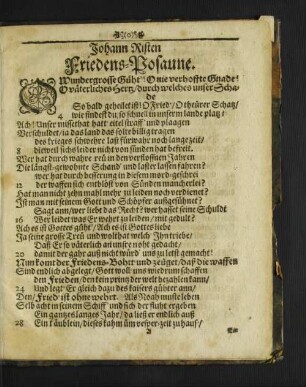 Johann Risten
Friedens-Posaune.
Wundergrosse Gühte! O nie verhoffte Gnade!
O väterliches Hertz/durch welches unser Scha-
de
So bald geheilet ist! O Fried/O theürer Schatz/
4 wie findest du so schnell in unserm lande platz?
Ach! Unser missethat hatt' eitel straff' und plaagen
Verschuldet/ja das land das solte billig tragen
des krieges schwehre last fürwahr noch lange zeit/
8 dieweil sich's leider nicht von sünden hat befreit.
Wer hat durch wahre reü in den verflossnen Jahren
Die längst-gewohnte Schand' und laster lassen fahren?
wer hat durch besserung in diesem mord-geschrei
12 der waffen sich entblöst von Sünden mancherlei?
Hat man nicht zehn mahl mehr zu leiden noch verdienet?
Ist man mit seinem Gott und Schöpfer außgesühnet?
Sagt ann/wer liebt das Recht? wer hasset seine Schuldt
16 Wer leidet was Er wehrt zu leiden/mit gedult?
Ach es ist Gottes gühte/Ach es ist Gottes liebe
Ja seine grosse Treü und wolthat welch' Ihn triebe/
Daß Er so väterlich an unsre noht gedacht/
20 damit der gahr auß nicht würd' uns zu letst gemacht!
Nun komt der Friedens-Bohte und zeüget/daß die waffen
Sind endlich abgelegt/Gott woll' uns wiedrum schaffen
den Frieden/den kein printz der welt bezahlen kann/
24 Und legt Er gleich dazu des kaisers gühter ann/
Den/Fried' ist ohne wehrt. Als Noah muste leben
Selb acht in seinem Schiff und sich der fluht ergeben
Ein gantzes langes Jahr/da ließ er endlich auß
28 Ein täublein/dieses kahm üm vesper-zeit zu hauß/
A